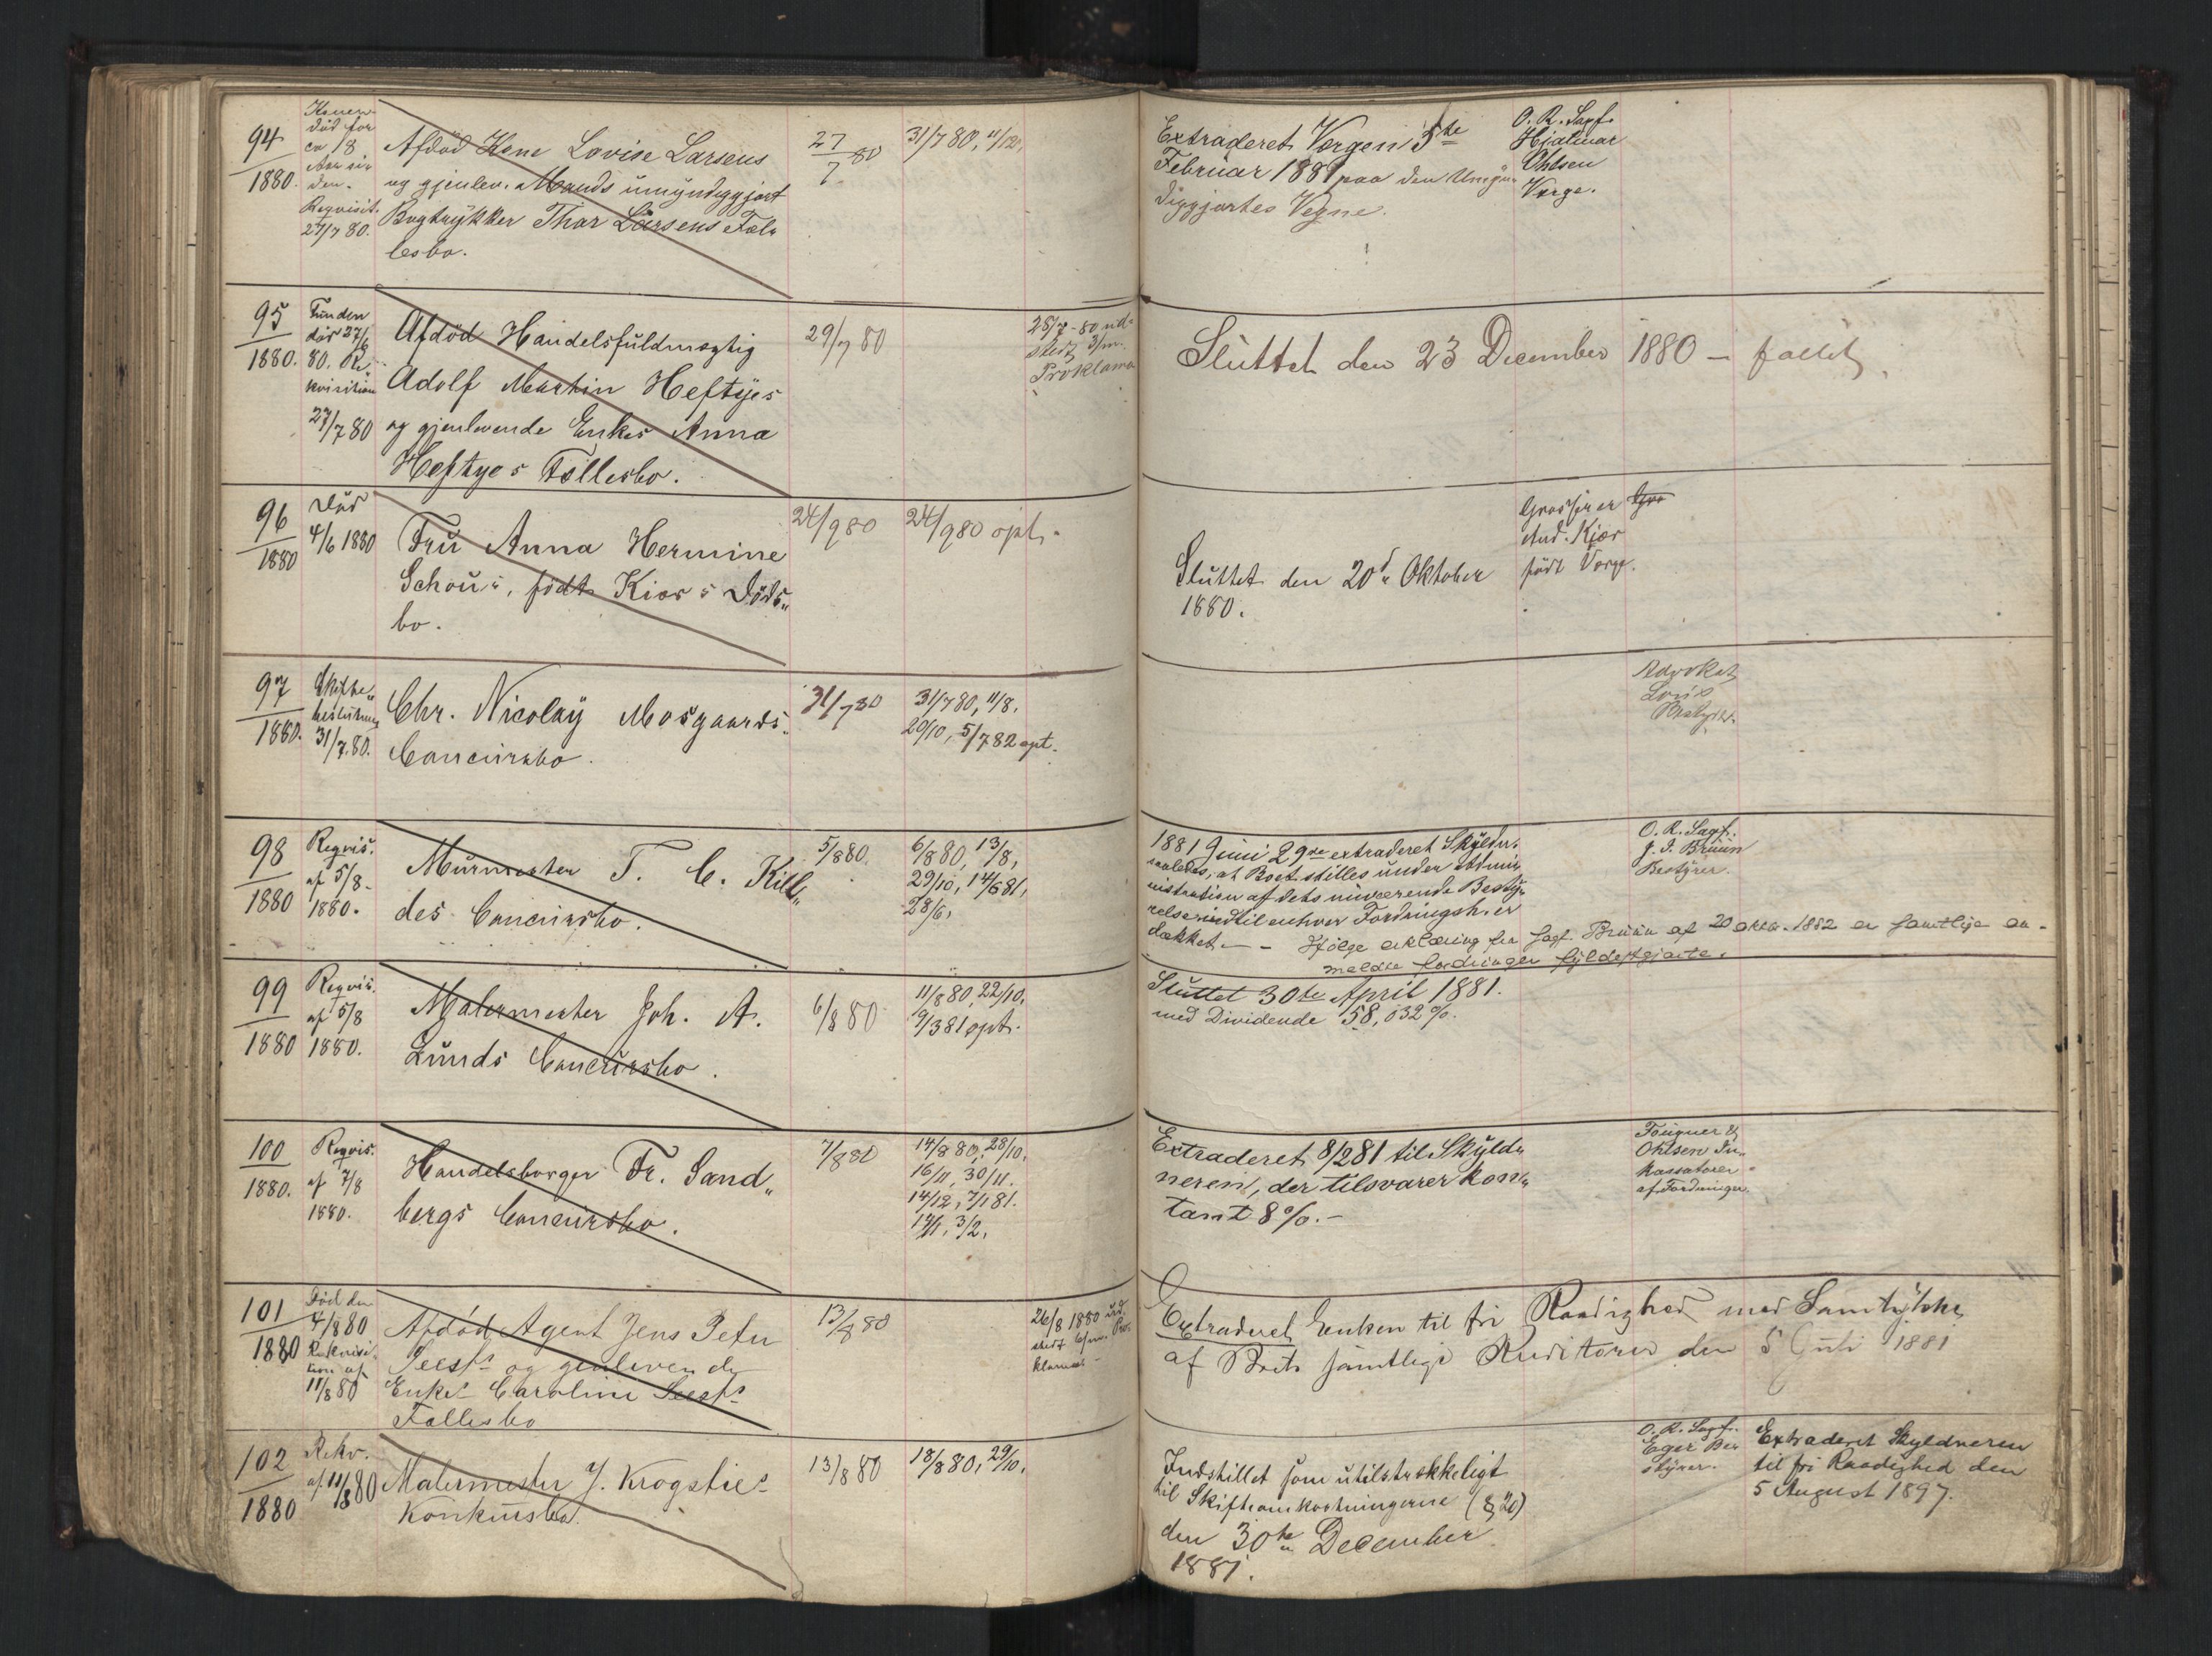 94
1880.
Konen
død for
ca 18
Aar si
den.
Reqvisit.
27/7 80.
Afdød Kone Lovise Larsens
og gjenlev. Mands umyndiggjort
Bogtrykker Thor Larsens Fæl„
lesbo.
27/7 80
31/7 80, 11/12,
Extraderet Vergen 5te
Februar 1881 paa den Umyn„
diggjortes Vegne.
O. R. Sagf.
Hjalmar
Ohlsen
Verge.
95
1880.
Funden
død 27/6
80. Re„
kvisition
27/7 80
Afdød Handelsfuldmægtig
Adolf Martin Heftyes
og gjenlevende Enkes Anna
Heftyes Fællesbo.
29/7 80
28/7 - 80 ud-
stedt 3/m.
Proklama
Sluttet den 23 December 1880 - fallit,
96
1880
Død
4/6 1880
Fru Anna Hermine
Schou's, født Kiær's Døds„
bo.
24/9 80
24/9 80 opt.
Sluttet den 20de Oktober
1880.
Grosserer
And. Kiær
født Verge.
97
1880.
Skifte„
beslutning
31/7. 80.
Chr. Nicolay Mosgaards
Concursbo.
31/7 80
31/7 80, 11/8,
29/10, 5/7 82 opt.
Advokat
Bestyrer.
98
1880
Reqvis.
af 5/8-
1880.
Murmester T. C. Kill„
des Concursbo.
5/8 80.
6/8 80, 13/8,
29/10, 14/6 81,
28/6,
1881 Juni 29de extraderet Skyldn.
saaledes, at Boet stilles under Admi„
nistration af dets nuværende Besty„
relse indtil enhver Fordringsh. er
dækket. - - Ifølge erklæring fra Sagf. Bruun af 20 oktbr. 1882 er samtlige an-
meldte fordringer fyldestgjorte.
O. R. Sagf.
J. J. Bruun
Bestyrer.
99
1880
Reqvis.
af 5/8
1880.
Malermester Joh. A.
Lunds Concursbo.
6/8 80
11/8 80, 22/10,
9/3 81 opt.
Sluttet 30te April 1881.
med Dividende 58,032 %.
100
1880.
Reqvis.
af 7/8
1880.
Handelsborger Fr. Sand„
bergs Concursbo.
7/8 80
14/8 80, 28/10,
16/11, 30/11.
14/12, 7/1 81.
14/1, 3/2,
Extraderet 8/2 81 til Skyld„
neren, der tilsvarer kon„
tant 8 %. -
Fougner &
Ohlsen In„
kassatorer
af Fordringer.
101
1880
Død den
4/8 80
Rekvisi„
tion af
11/8 80
Afdød Agent Jens Peter
Seest's og gjenlevende
Enke's Caroline Seest's
Fællesbo
13/8 80
26/8 1880 ud„
stedt 6/m. Pro„
klama -
Extraderet Enken til fri Raadighed med Samtykke
af Boets samtlige Kreditorer den 5 Juli 1881
102
1880
Rekv.
af 11/8 80
Malermester J. Krogstie's
Konkursbo.
13/8 80
18/8 80, 29/10,
Indstillet som utilstrækkeligt
til Skifteomkostningerne (§ 20)
den 30te December
1881.
O. R. Sagf.
Eger Be„
styrer.
Extraderet Skyldneren
til fri Raadighed den
5 August 1897.